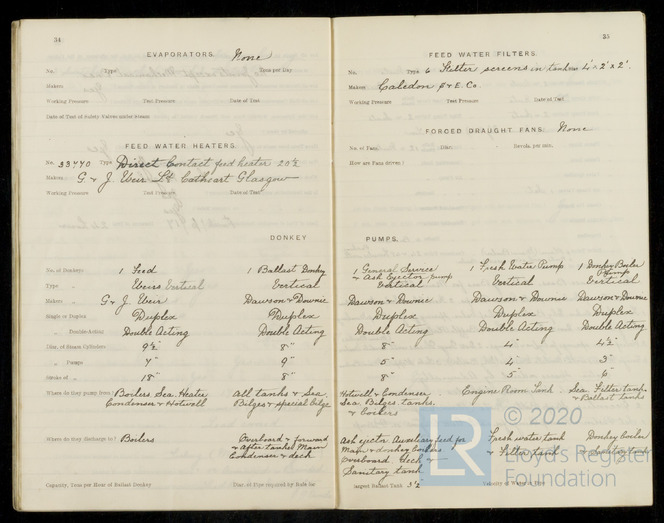 34
EVAPORATORS. None
No. Type Tons per Day
Makers
Working Pressure Test Pressure Date of Test
Date of Test of Safety Valves under Steam
FEED WATER HEATERS.
No. 33440 Type Direct Contact feed heater 20½
Makers G. & J. Weir Ld Cathcart Glasgow
Working Pressure Test Pressure Date of Test
DONKEY
No. of Donkeys 1 Feed 1 Ballast Donkey
Type " Weirs Vertical Vertical
Makers " G & J Weir Dawson & Downie
Single or Duplex Duplex Duplex
" Double-Acting Double Acting Double Acting
Diar. of Steam Cylinders 9½" 8"
" Pumps 7" 9"
Stroke of " 18" 8"
Where do they pump from? Boilers, Sea, Heater All tanks & Sea
Condenser & Hotwell Bilges & special bilge
Where do they discharge to? Boilers Overboard & forward
& after tanks Main
Condenser & deck
Capacity, Tons per Hour of Ballast Donkey Diar. of Pipe required by Rule for
35
FEED WATER FILTERS.
No. Type 6 Filter screens in tank 4' × 2' × 2'
Makers Caledon S & E. Co.
Working Pressure Test Pressure Date of Test
FORCED DRAUGHT FANS. None
No. of Fans Diar. Revols. per min.
How are Fans driven?
PUMPS.
1 General Service 1 Fresh Water Pump 1 Donkey Boiler
& Ash Ejector pump Pump
Vertical Vertical Vertical
Dawson & Downie Dawson & Downie Dawson & Downie
Duplex Duplex Duplex
Double Acting Double Acting Double Acting
8" 4" 4½
5" 4" 3"
8" 5" 6
Hotwell & Condenser Engine Room Tank Sea Filter tank
Sea. Bilges. tanks & Ballast tanks
Ash ejector Auxiliary feed for Fresh water tank Donkey Boiler
Main & donkey boilers & Filter tank & Sanitary tank
Overboard deck &
Sanitary tank
largest Ballast Tank 3½ Velocity of Water
LR
© 2020
Lloyd's Register
Foundation